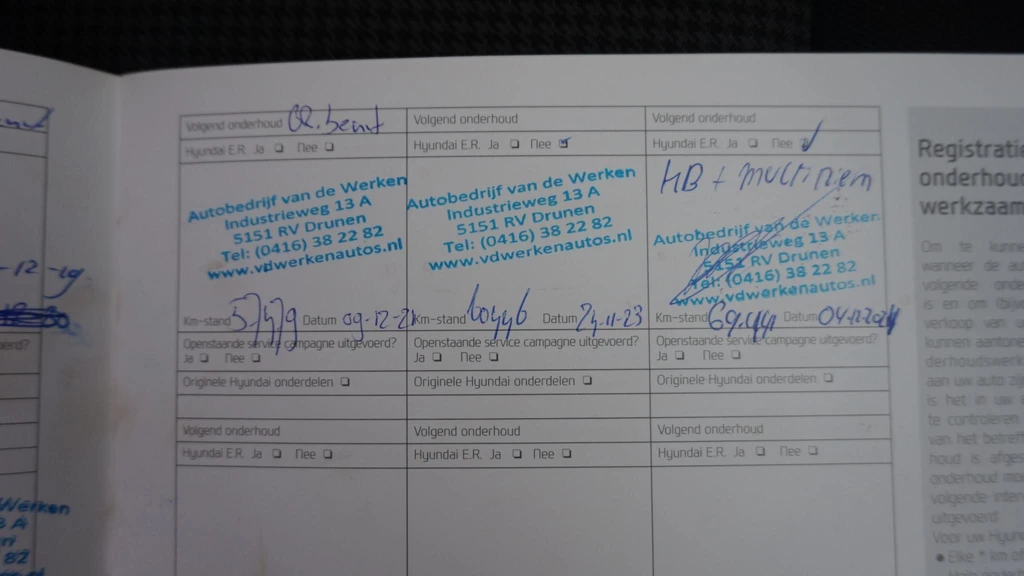 Volgend onderhoud
Hyundai E.R. Ja Nee
Autobedrijf van de Werken
Industrieweg 13 A
5151 RV Drunen
Tel: (0416) 38 22 82
www.vdwerkenautos.nl
Km-stand Datum 09-12-21
Openstaande service campagne uitgevoerd?
Ja Nee
Originele Hyundai onderdelen
Volgend onderhoud
Hyundai E.R. Ja Nee
Volgend onderhoud
Hyundai E.R. Ja Nee
Autobedrijf van de Werken
Industrieweg 13 A
5151 RV Drunen
Tel: (0416) 38 22 82
www.vdwerkenautos.nl
Km-stand Datum 23
Openstaande service campagne uitgevoerd?
Ja Nee
Originele Hyundai onderdelen
Volgend onderhoud
Hyundai E.R. Ja Nee
Volgend onderhoud
Hyundai E.R. Ja Nee
HB + multiriem
Autobedrijf van de Werken
Industrieweg 13 A
5151 RV Drunen
Tel: (0416) 38 22 82
www.vdwerkenautos.nl
Km-stand Datum
Openstaande service campagne uitgevoerd?
Ja Nee
Originele Hyundai onderdelen
Volgend onderhoud
Hyundai E.R. Ja Nee
Registratie
onderhoud
werkzaam
Om te kunne
wanneer de au
volgende onde
is en om (bijv
verkoop van u
kunnen aantone
derhoudswerk
aan uw auto zij
is het in uw
te controleren
van het betreff
houd is afges
onderhoud mo
volgende inter
uitgevoerd
Voor uw Hyun
Elke * km of
-12-19
Werken
3 A
82